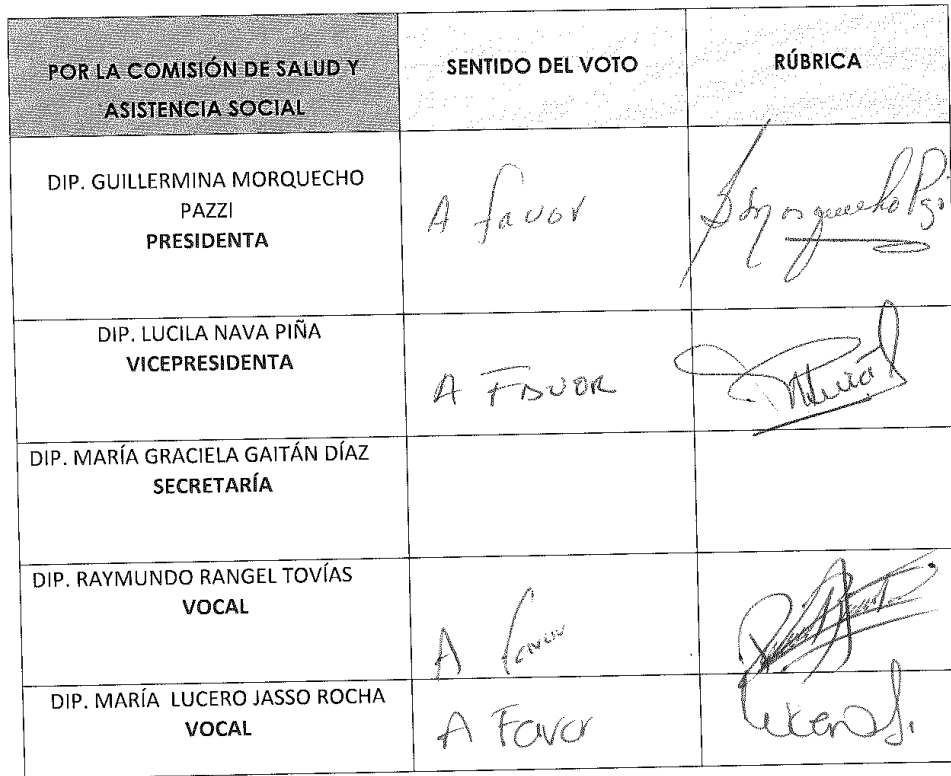 POR LA COMISIÓN DE SALUD Y
ASISTENCIA SOCIAL
SENTIDO DEL VOTO
RÚBRICA
DIP. GUILLERMINA MORQUECHO
PAZZI
PRESIDENTA
A favor
DIP. LUCILA NAVA PIÑA
VICEPRESIDENTA
A FAVOR
DIP. MARÍA GRACIELA GAITÁN DÍAZ
SECRETARÍA
DIP. RAYMUNDO RANGEL TOVÍAS
VOCAL
A favor
DIP. MARÍA LUCERO JASSO ROCHA
VOCAL
A Favor